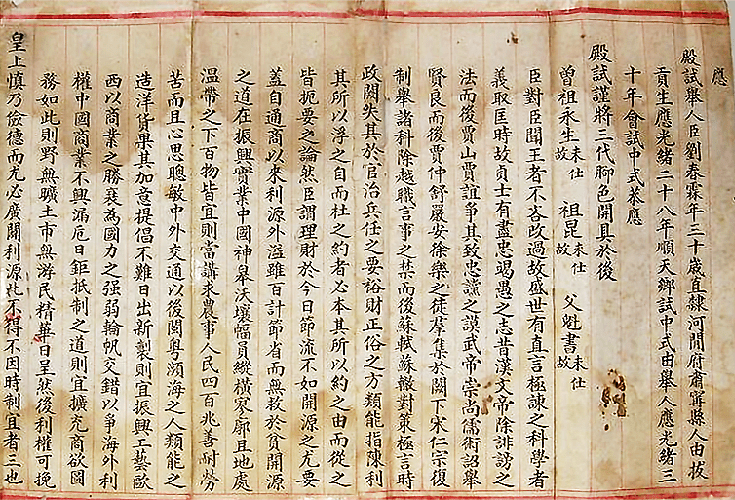 應
殿試舉人臣劉春霖年三十歲直隸河間府肅寧縣人由拔
貢生應光緒二十八年順天鄉試中式由舉人應光緒三
十年會試中式恭應
殿試謹將三代腳色開具於後
曾祖永生未仕故 祖昆未仕故 父魁書未仕故
臣對臣聞王者不吝改過故盛世有直言極諫之科學者
義取匡時故貞士有盡忠竭愚之志昔漢文帝除誹謗之
法而後賈山賈誼爭其致忠讜之謨武帝崇尚儒術詔舉
賢良而後賈仲舒嚴安徐樂之徒羣集於闕下宋仁宗復
制舉諸科除越職言事之禁而後蘇軾蘇轍對策極言時
政闕失其於官治兵任之要裕財正俗之方類能指陳利
其所以浮之自而杜之約者必本其所以約之由而從之
皆扼要之論然臣謂理財於今日節流不如開源之尤要
蓋自通商以來利源外溢雖百計節省而無救於貧開源
之道在振興實業中國神皋沃壤幅員縱橫寥廓且地處
溫帶之下百物皆宜則當講求農事人民四百兆善耐勞
苦而且心思聰敏中外交通以後閩粵瀕海之人類能之
造洋貨果其加意提倡不難日出新製則宜振興工藝歐
西以商業之勝衰為國力之强弱輪帆交錯以爭海外利
權中國商業不興漏卮日鉅抵制之道則宜擴充商欲圖
務如此則野無曠土市無游民精華日呈然後利權可挽
皇上慎乃儉德而尤必廣闢利源此不得不因時制宜者三也